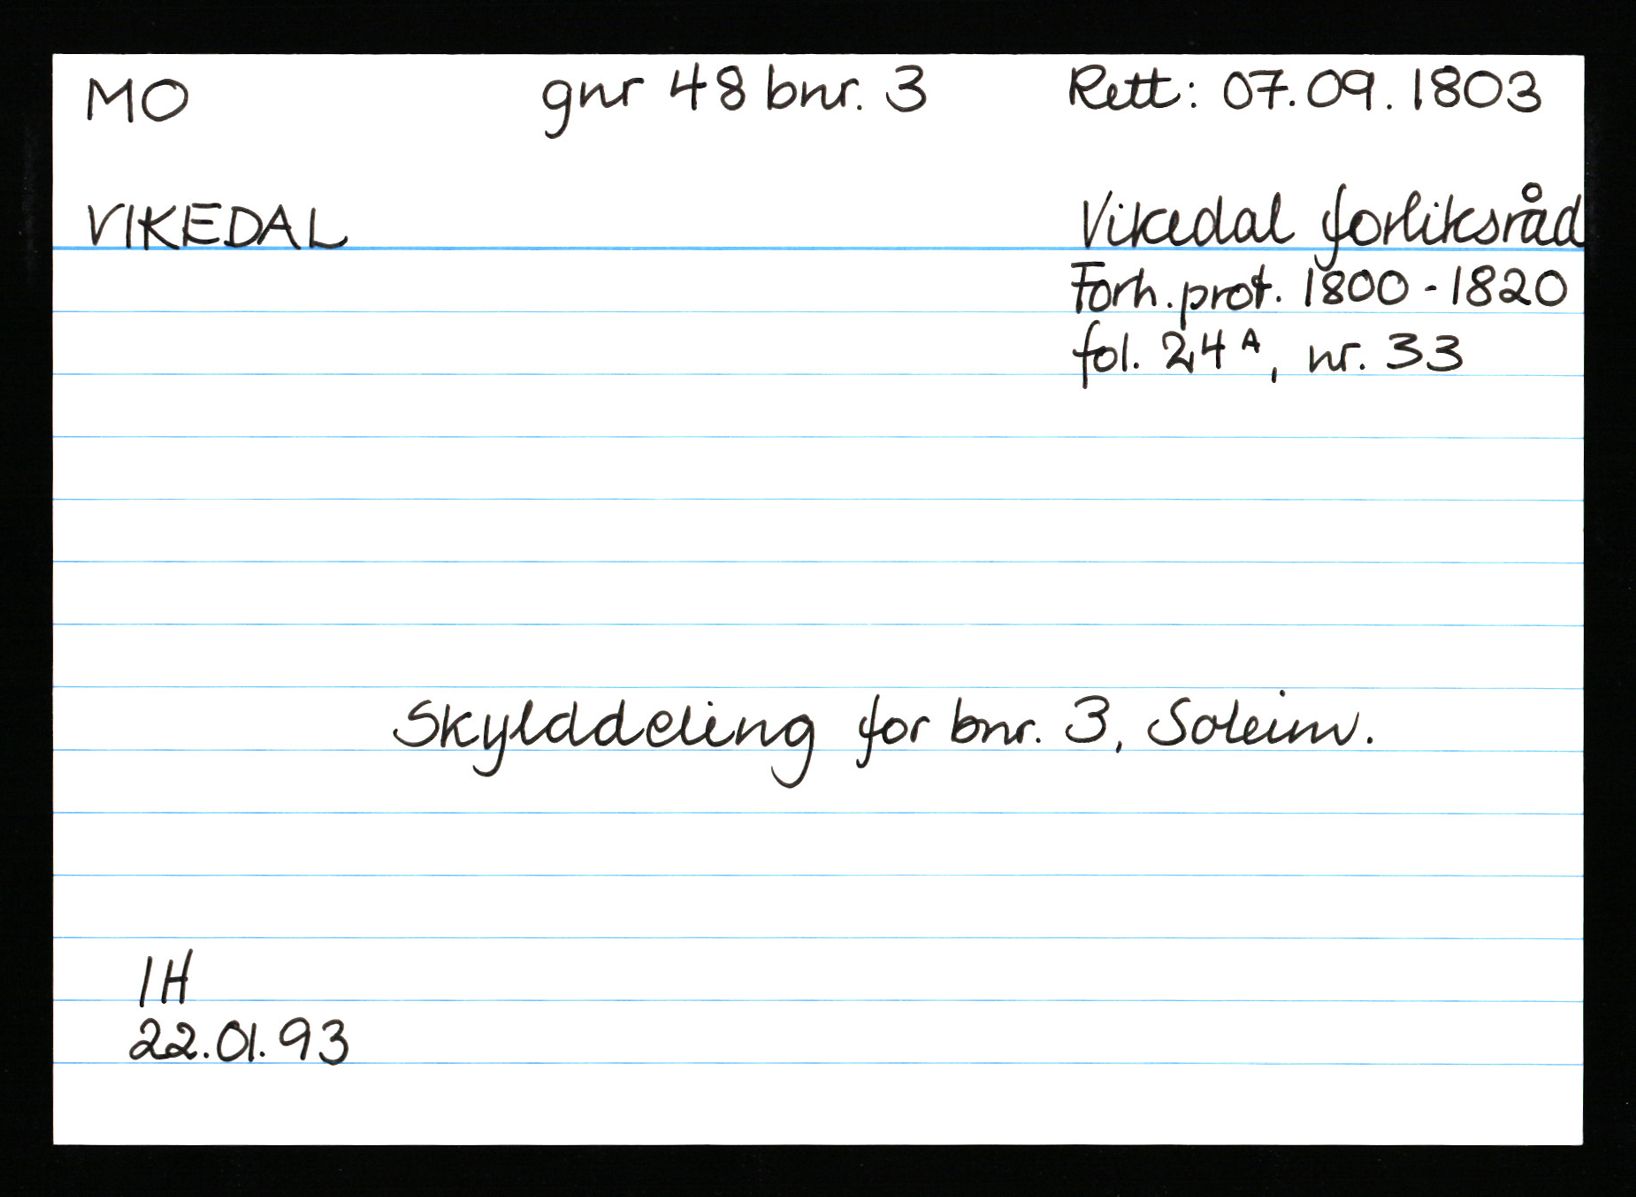 MO gnr 48 bnr. 3 Rett: 07.09.1803
VIKEDAL Vikedal forliksråd
Forh. prot. 1800-1820
fol. 24 A, nr. 33
Skylddeling for bnr. 3, Soleim.
IH
22.01.93